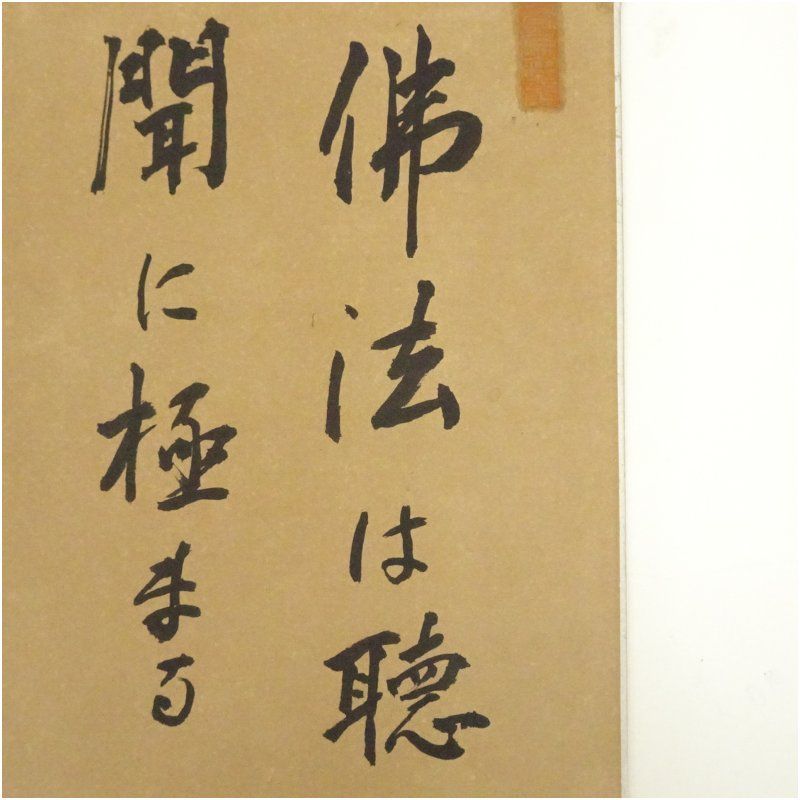 佛法は聴
聞に極まる